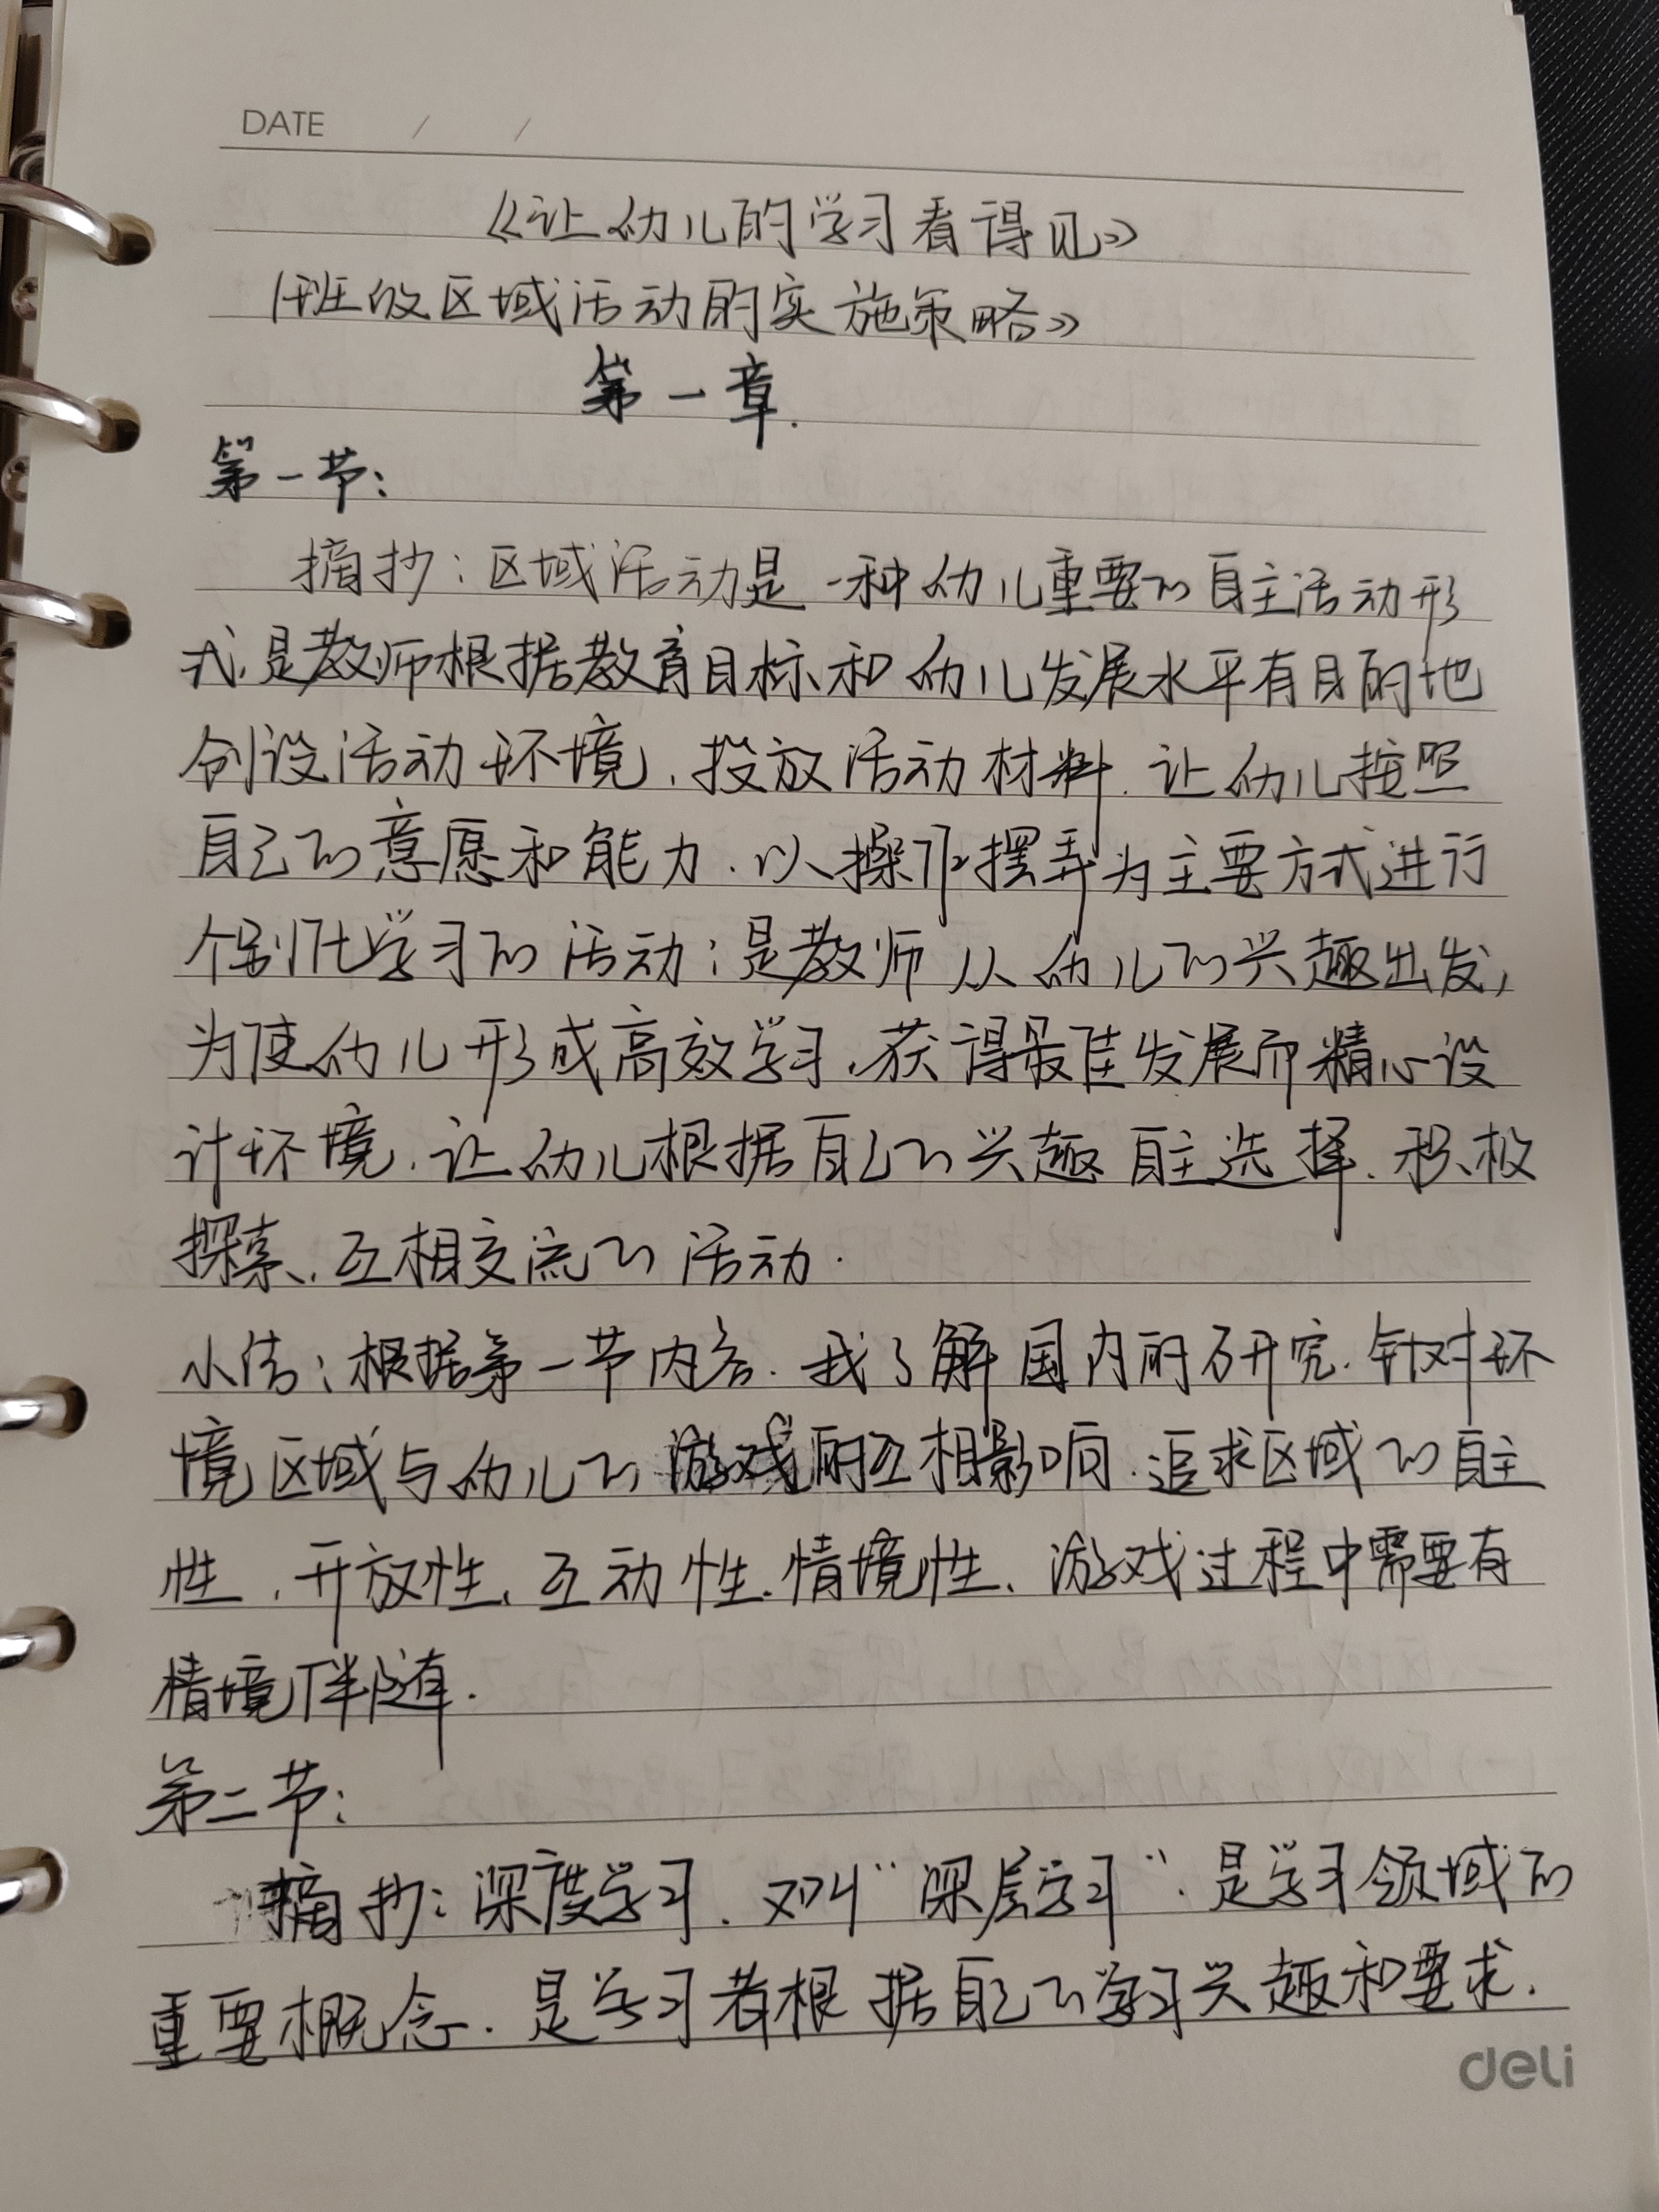 DATE / /
《让幼儿的学习看得见》
班级区域活动的实施策略》
第一章.
第一节:
摘抄:区域活动是一种幼儿重要的自主活动形
式,是教师根据教育目标和幼儿发展水平有目的地
创设活动环境,投放活动材料.让幼儿按照
自己的意愿和能力.以操作摆弄为主要方式进行
个别化学习的活动;是教师从幼儿的兴趣出发,
为使幼儿形成高效学习、获得最佳发展而精心设
计环境,让幼儿根据自己的兴趣自主选择、积极
探索、互相交流的活动.
小结:根据第一节内容.我了解国内的研究.针对环
境区域与幼儿的游戏的互相影响.追求区域的自主
性、开放性、互动性.情境性、游戏过程中需要有
情境伴随.
第二节:
摘抄:深度学习.又叫“深层学习”.是学习领域的
重要概念.是学习者根据自己的学习兴趣和要求.
deli